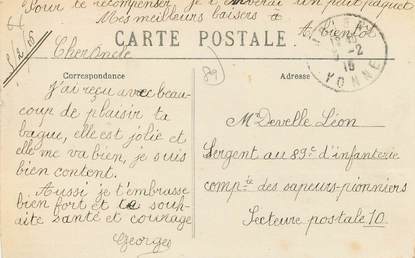 Pour te récompenser je t'enverai un petit paquet
Mes meilleurs baisers à
A bientôt
5/2 16
CARTE POSTALE
Cher Oncle
89
YONNE
Correspondance
Adresse
J'ai reçu avec beau-
coup de plaisir ta
bague, elle est jolie et
elle me va bien, je suis
bien content.
Aussi je t'embrasse
bien fort et te souh-
aite santé et courage
Georges
Mr Develle Léon
Sergent au 89e d'infanterie
compie des sapeurs-pionniers
Secteure postale 10